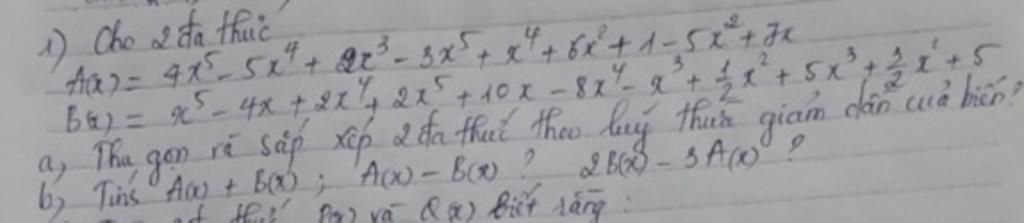 1) Cho 2 đa thức
A(x) = 4x⁵ - 5x⁴ + 2x³ - 3x⁵ + x⁴ + 6x² + 1 - 5x² + 7x
B(x) = x⁵ - 4x + 2x⁴ + 2x⁵ + 10x - 8x⁴ - x³ + 1/2 x² + 5x³ + 3/2 x² + 5
a, Thu gọn rồi sắp xếp 2 đa thức theo luỹ thừa giảm dần của biến?
b, Tính A(x) + B(x) ; A(x) - B(x) ? 2B(x) - 3A(x) ?
thức P(x) và Q(x) biết rằng :